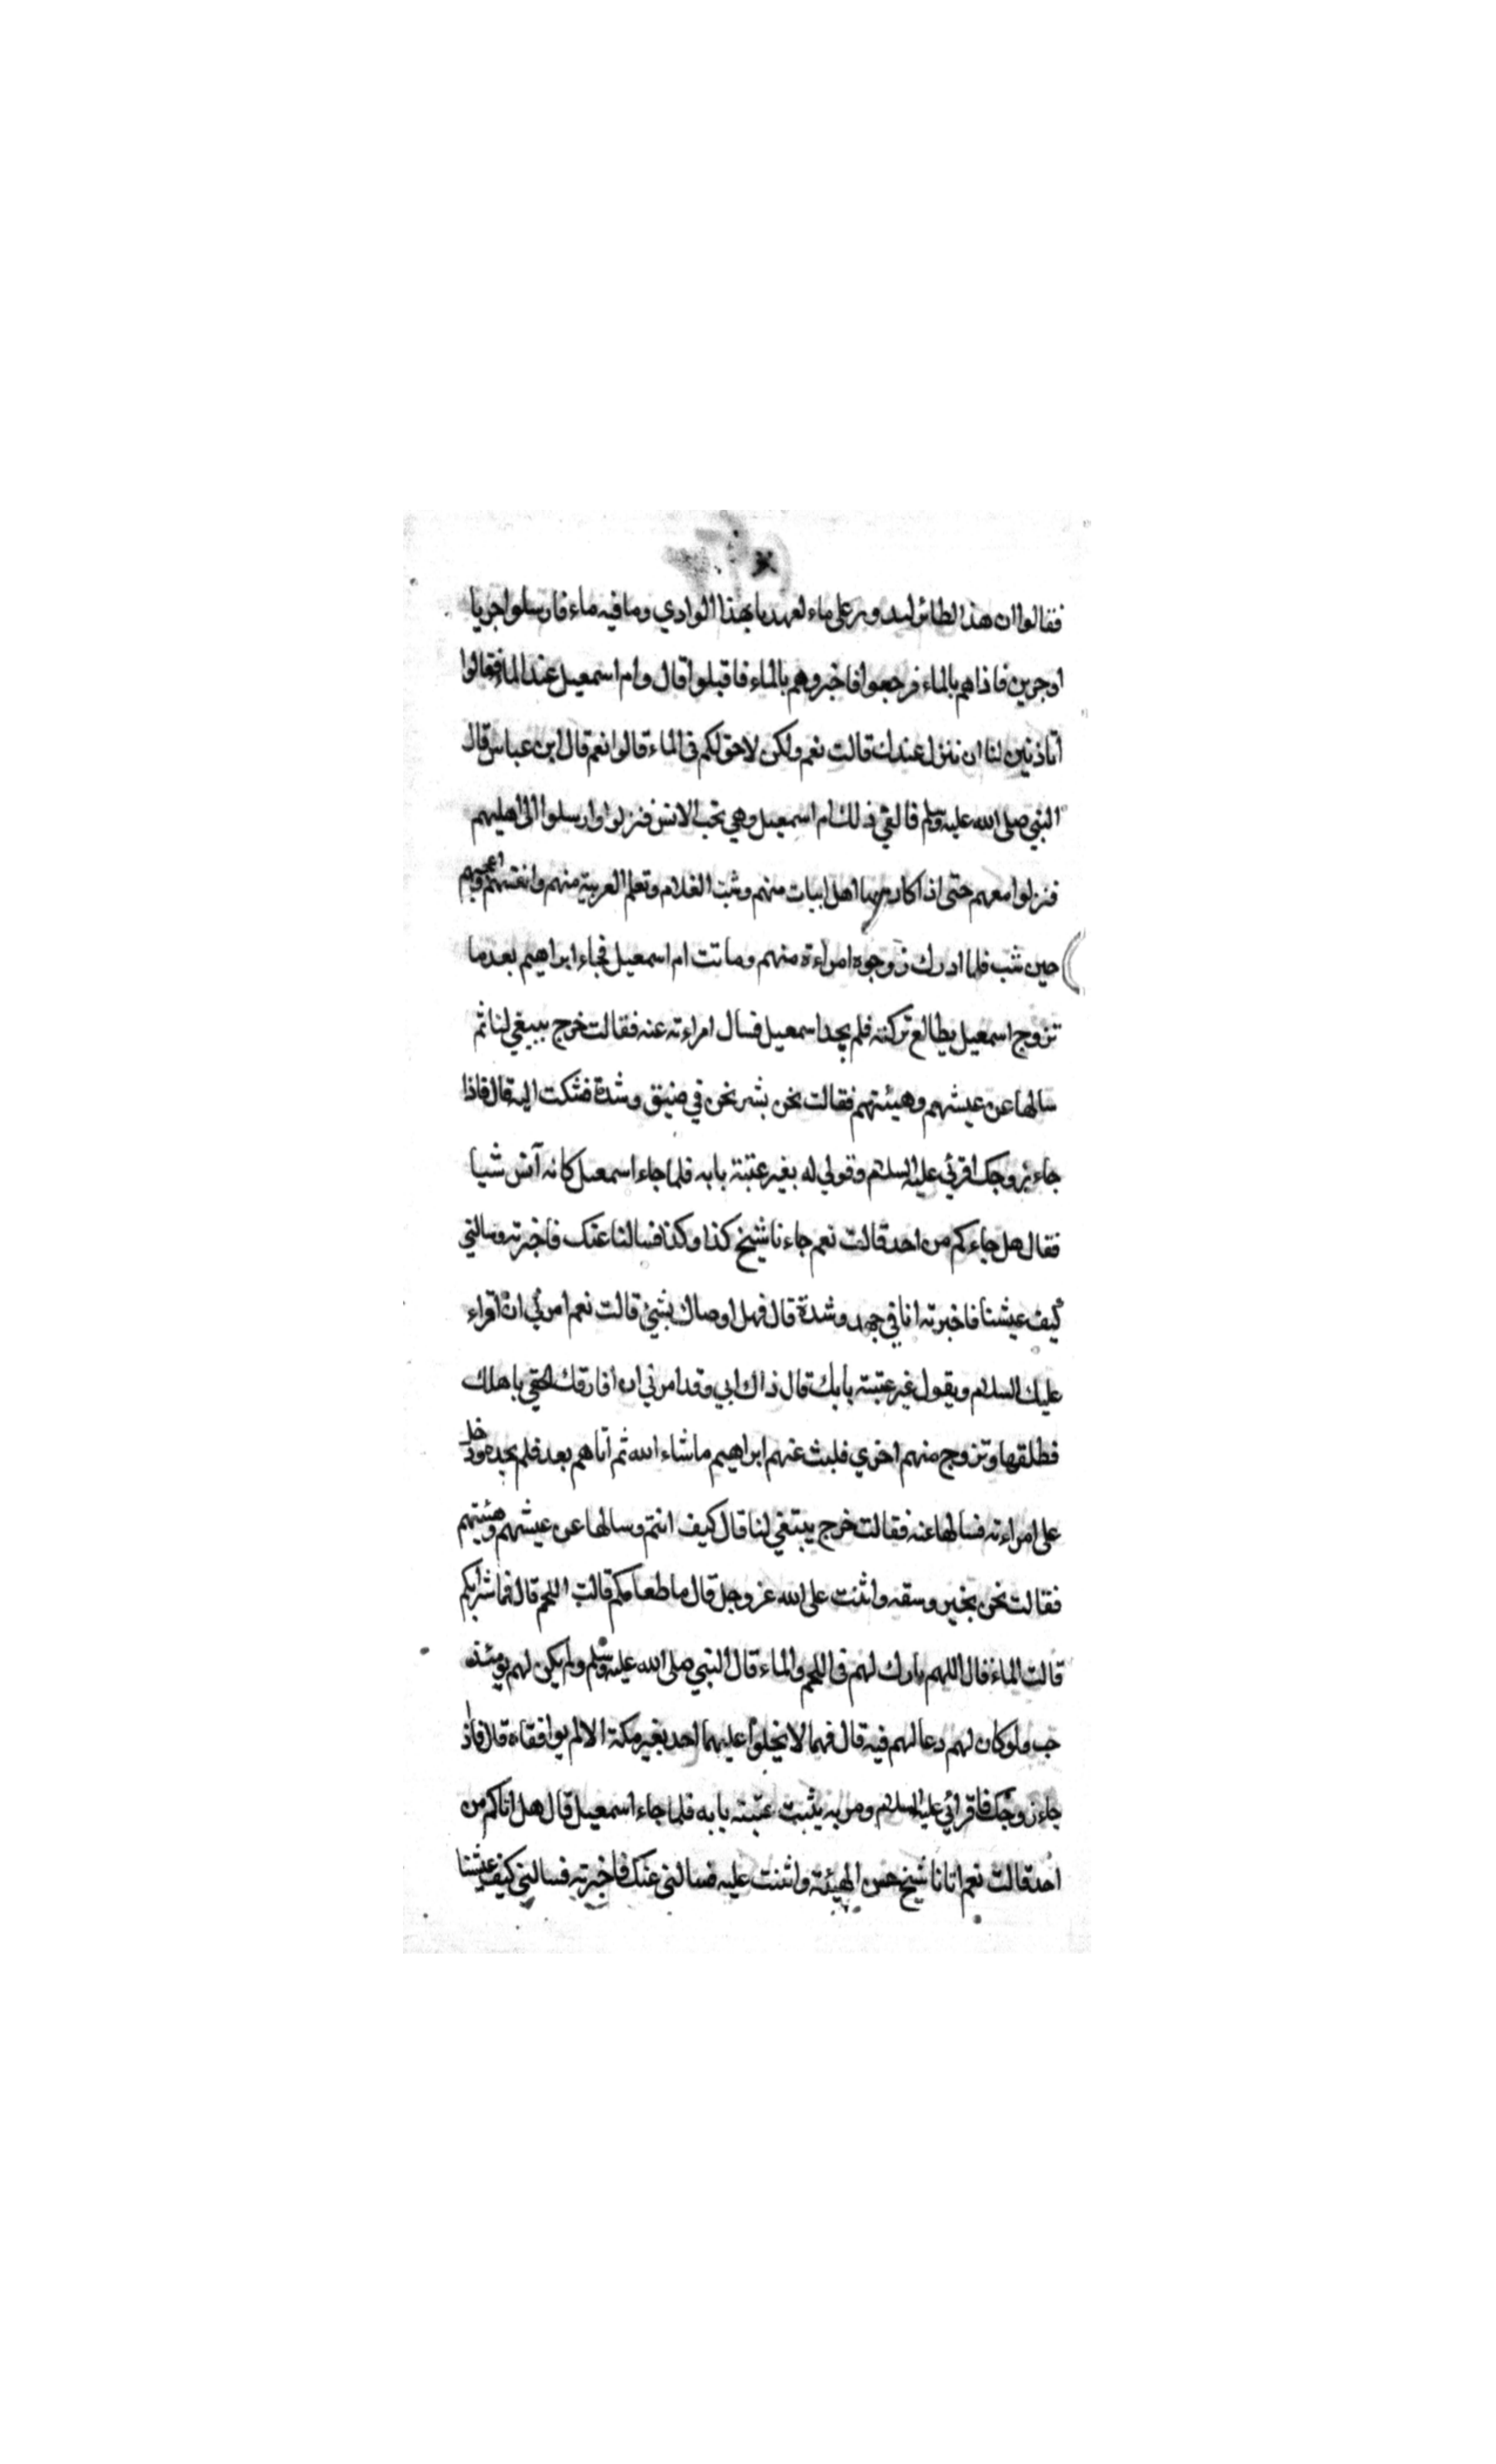 فقالوا ان هذا الطائر ليدور على ماء لعهدنا بهذا الوادي وما فيه ماء فارسلوا جريا
او جرين فاذاهم بالماء فرجعوا فاخبروهم بالماء فاقبلوا قال وام اسمعيل عند الماء فقالوا
اتاذنين لنا ان ننزل عندك قالت نعم ولكن لاحق لكم في الماء قالوا نعم قال ابن عباس قال
النبي صلى الله عليه وسلم فالفي ذلك ام اسمعيل وهي تحب الانس فنزلوا وارسلوا الى اهليهم
فنزلوا معهم حتى اذا كان بها اهل ابيات منهم وشب الغلام وتعلم العربية منهم وانفسهم واعجبهم
حين شب فلما ادرك زوجوه امراءة منهم وماتت ام اسمعيل فجاء ابراهيم بعد ما
تزوج اسمعيل يطالع تركته فلم يجد اسمعيل فسال امراءته عنه فقالت خرج يبتغي لنا ثم
سالها عن عيشهم وهيئتهم فقالت نحن بشر نحن في ضيق وشدة فشكت اليه قال فاذا
جاء زوجك اقرئي عليه السلام وقولي له يغير عتبة بابه فلما جاء اسمعيل كانه آنس شيا
فقال هل جاءكم من احد قالت نعم جاءنا شيخ كذا وكذا فسالنا عنك فاخبرته وسالني
كيف عيشنا فاخبرته انا في جهد وشدة قال فهل اوصاك بشيئ قالت نعم امرني ان اقراء
عليك السلام ويقول غير عتبة بابك قال ذاك ابي وقد امرني ان افارقك الحقي باهلك
فطلقها وتزوج منهم اخري فلبث عنهم ابراهيم ماشاء الله ثم اتاهم بعد فلم يجده ودخل
على امراءته فسالها عنه فقالت خرج يبتغي لنا قال كيف انتم وسالها عن عيشهم وهيئتهم
فقالت نحن بخير وسقه واثنت على الله عز وجل قال ما طعامكم قالت اللحم قال فما شرابكم
قالت الماء قال اللهم بارك لهم في اللحم والماء قال النبي صلى الله عليه وسلم ولم يكن لهم يومئذ
حب ولو كان لهم دعا لهم فيه قال فهما لا يخلوا عليهما احد بغير مكة الا لم يوافقاه قال فاذ
جاء زوجك فاقرائي عليه السلام ومريه يثبت عتبته بابه فلما جاء اسمعيل قال هل اتاكم من
احد قالت نعم اتانا شيخ حسن الهيئة واثنت عليه فسالني عنك فاخبرته فسالني كيف عيشنا